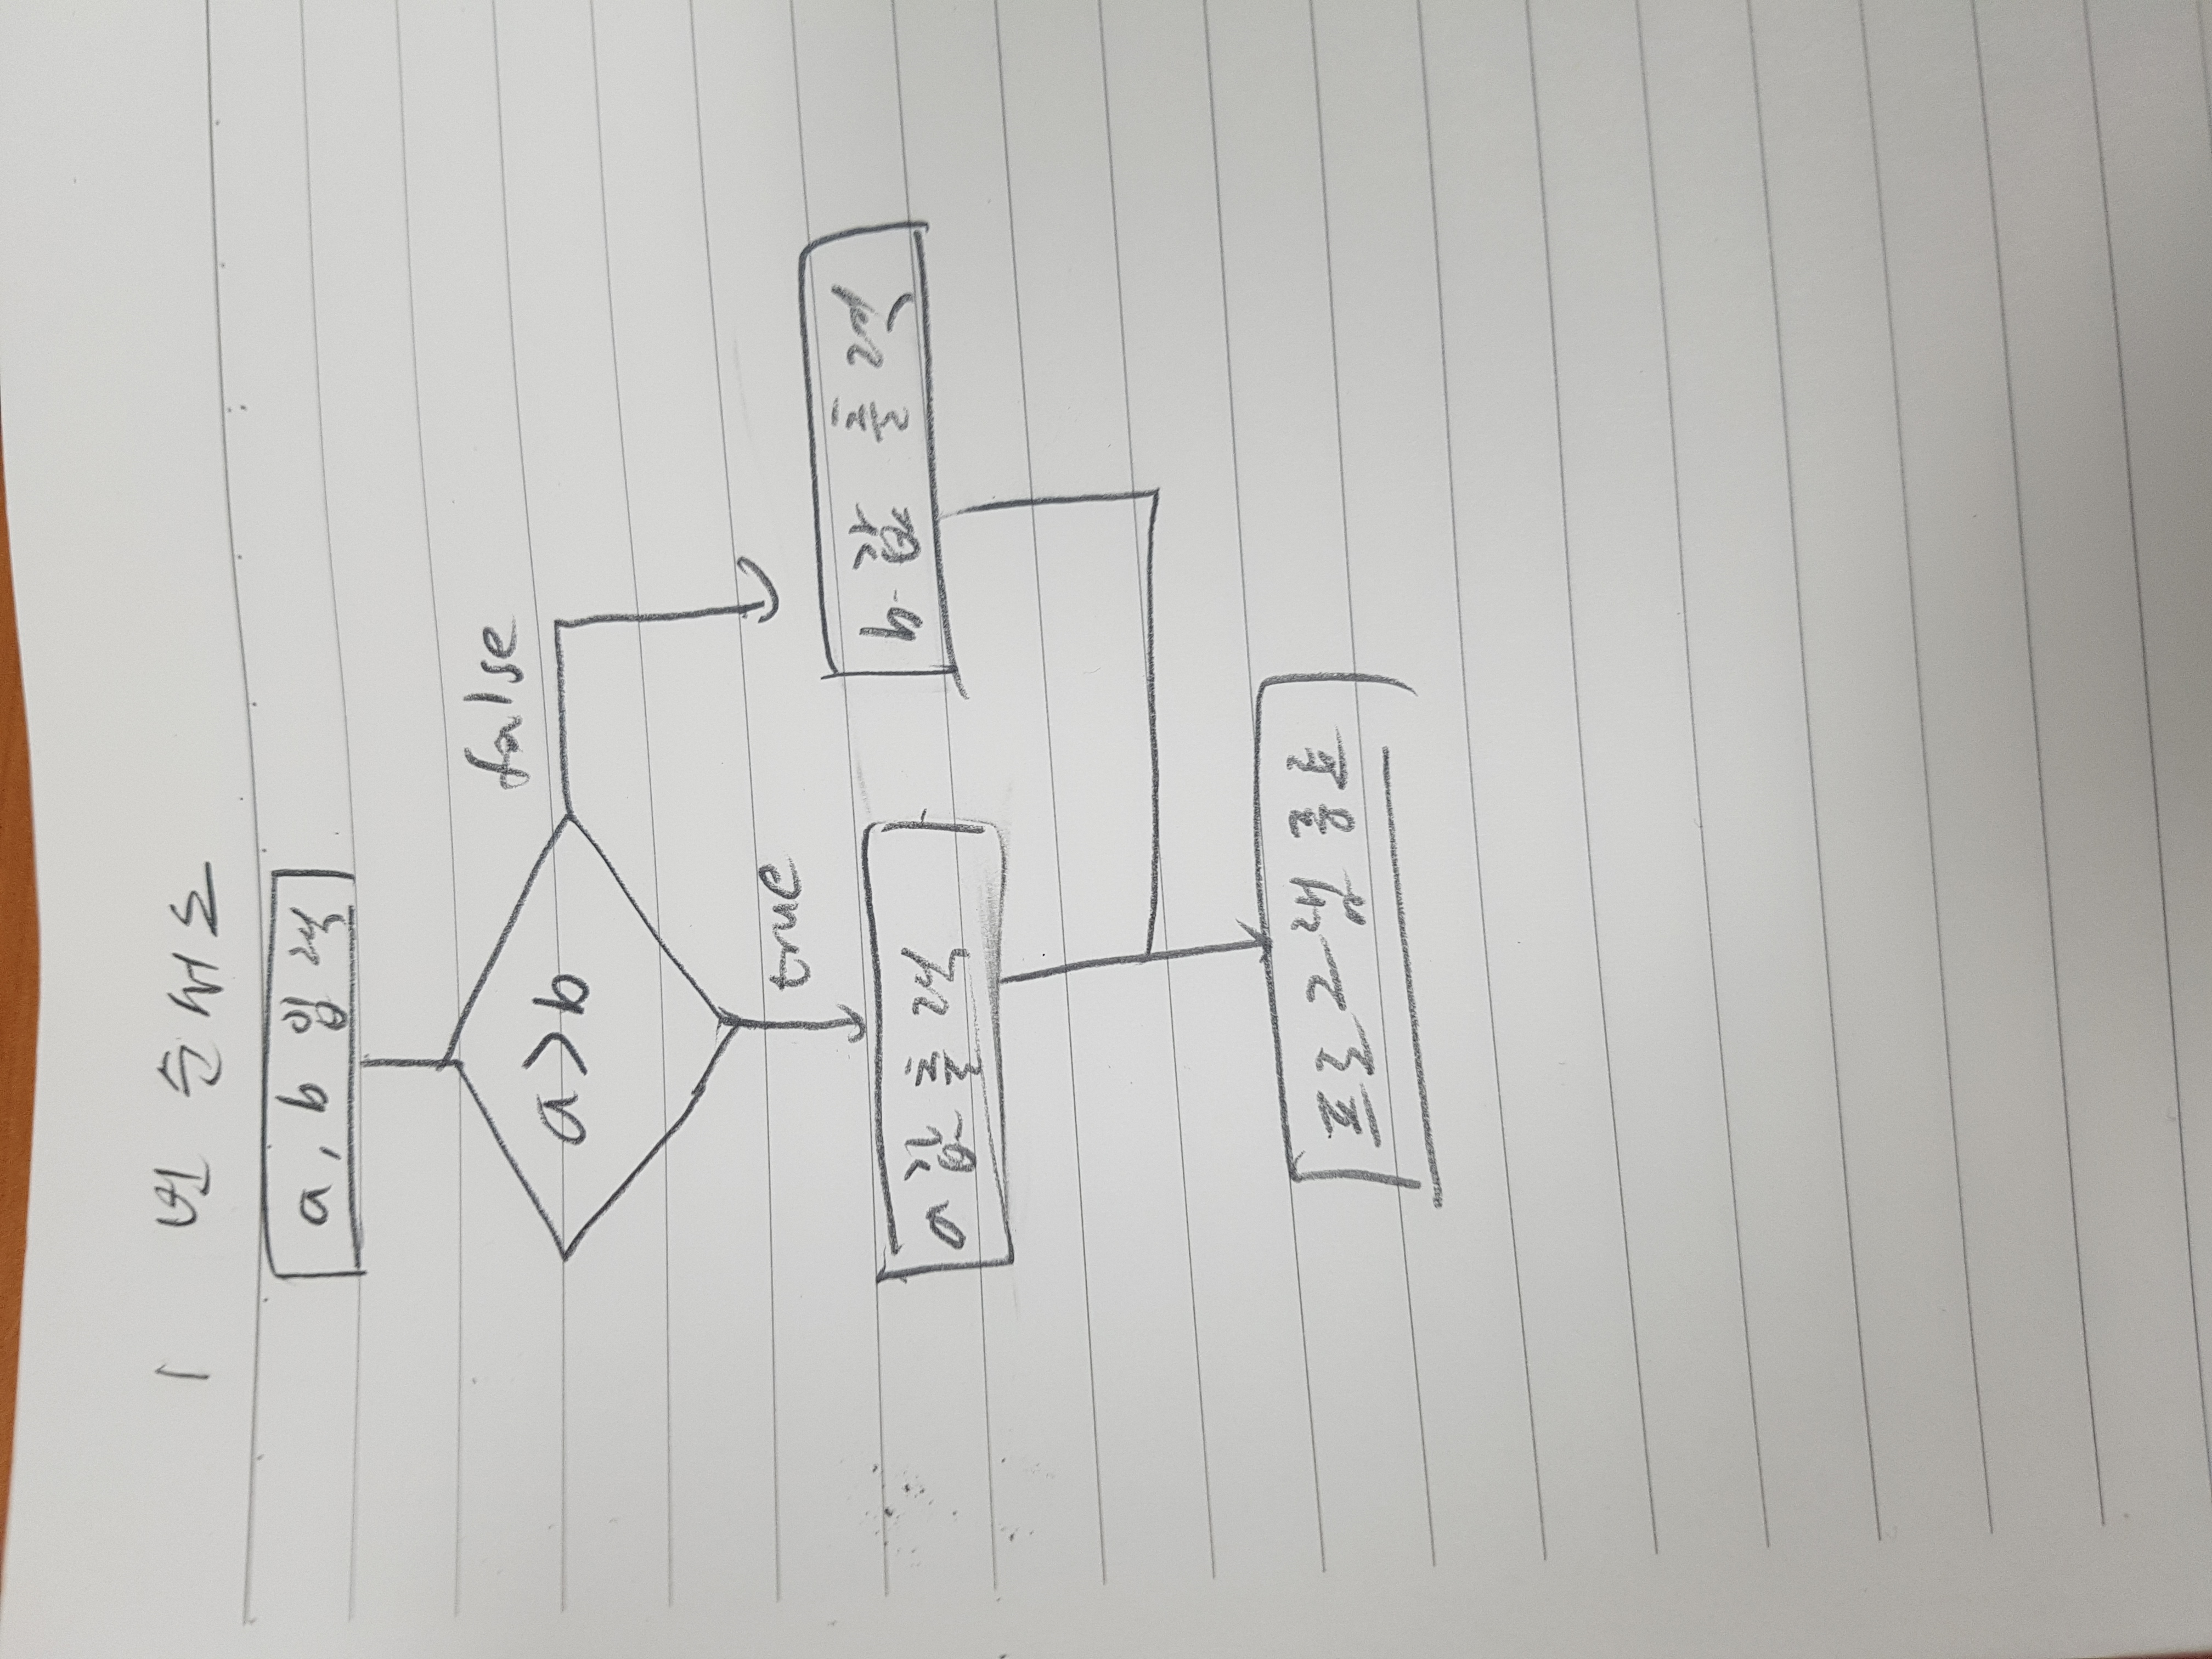 1 번 순서도
a, b 입력
a>b
false
true
a값 출력
b값 출력
프로그램 종료